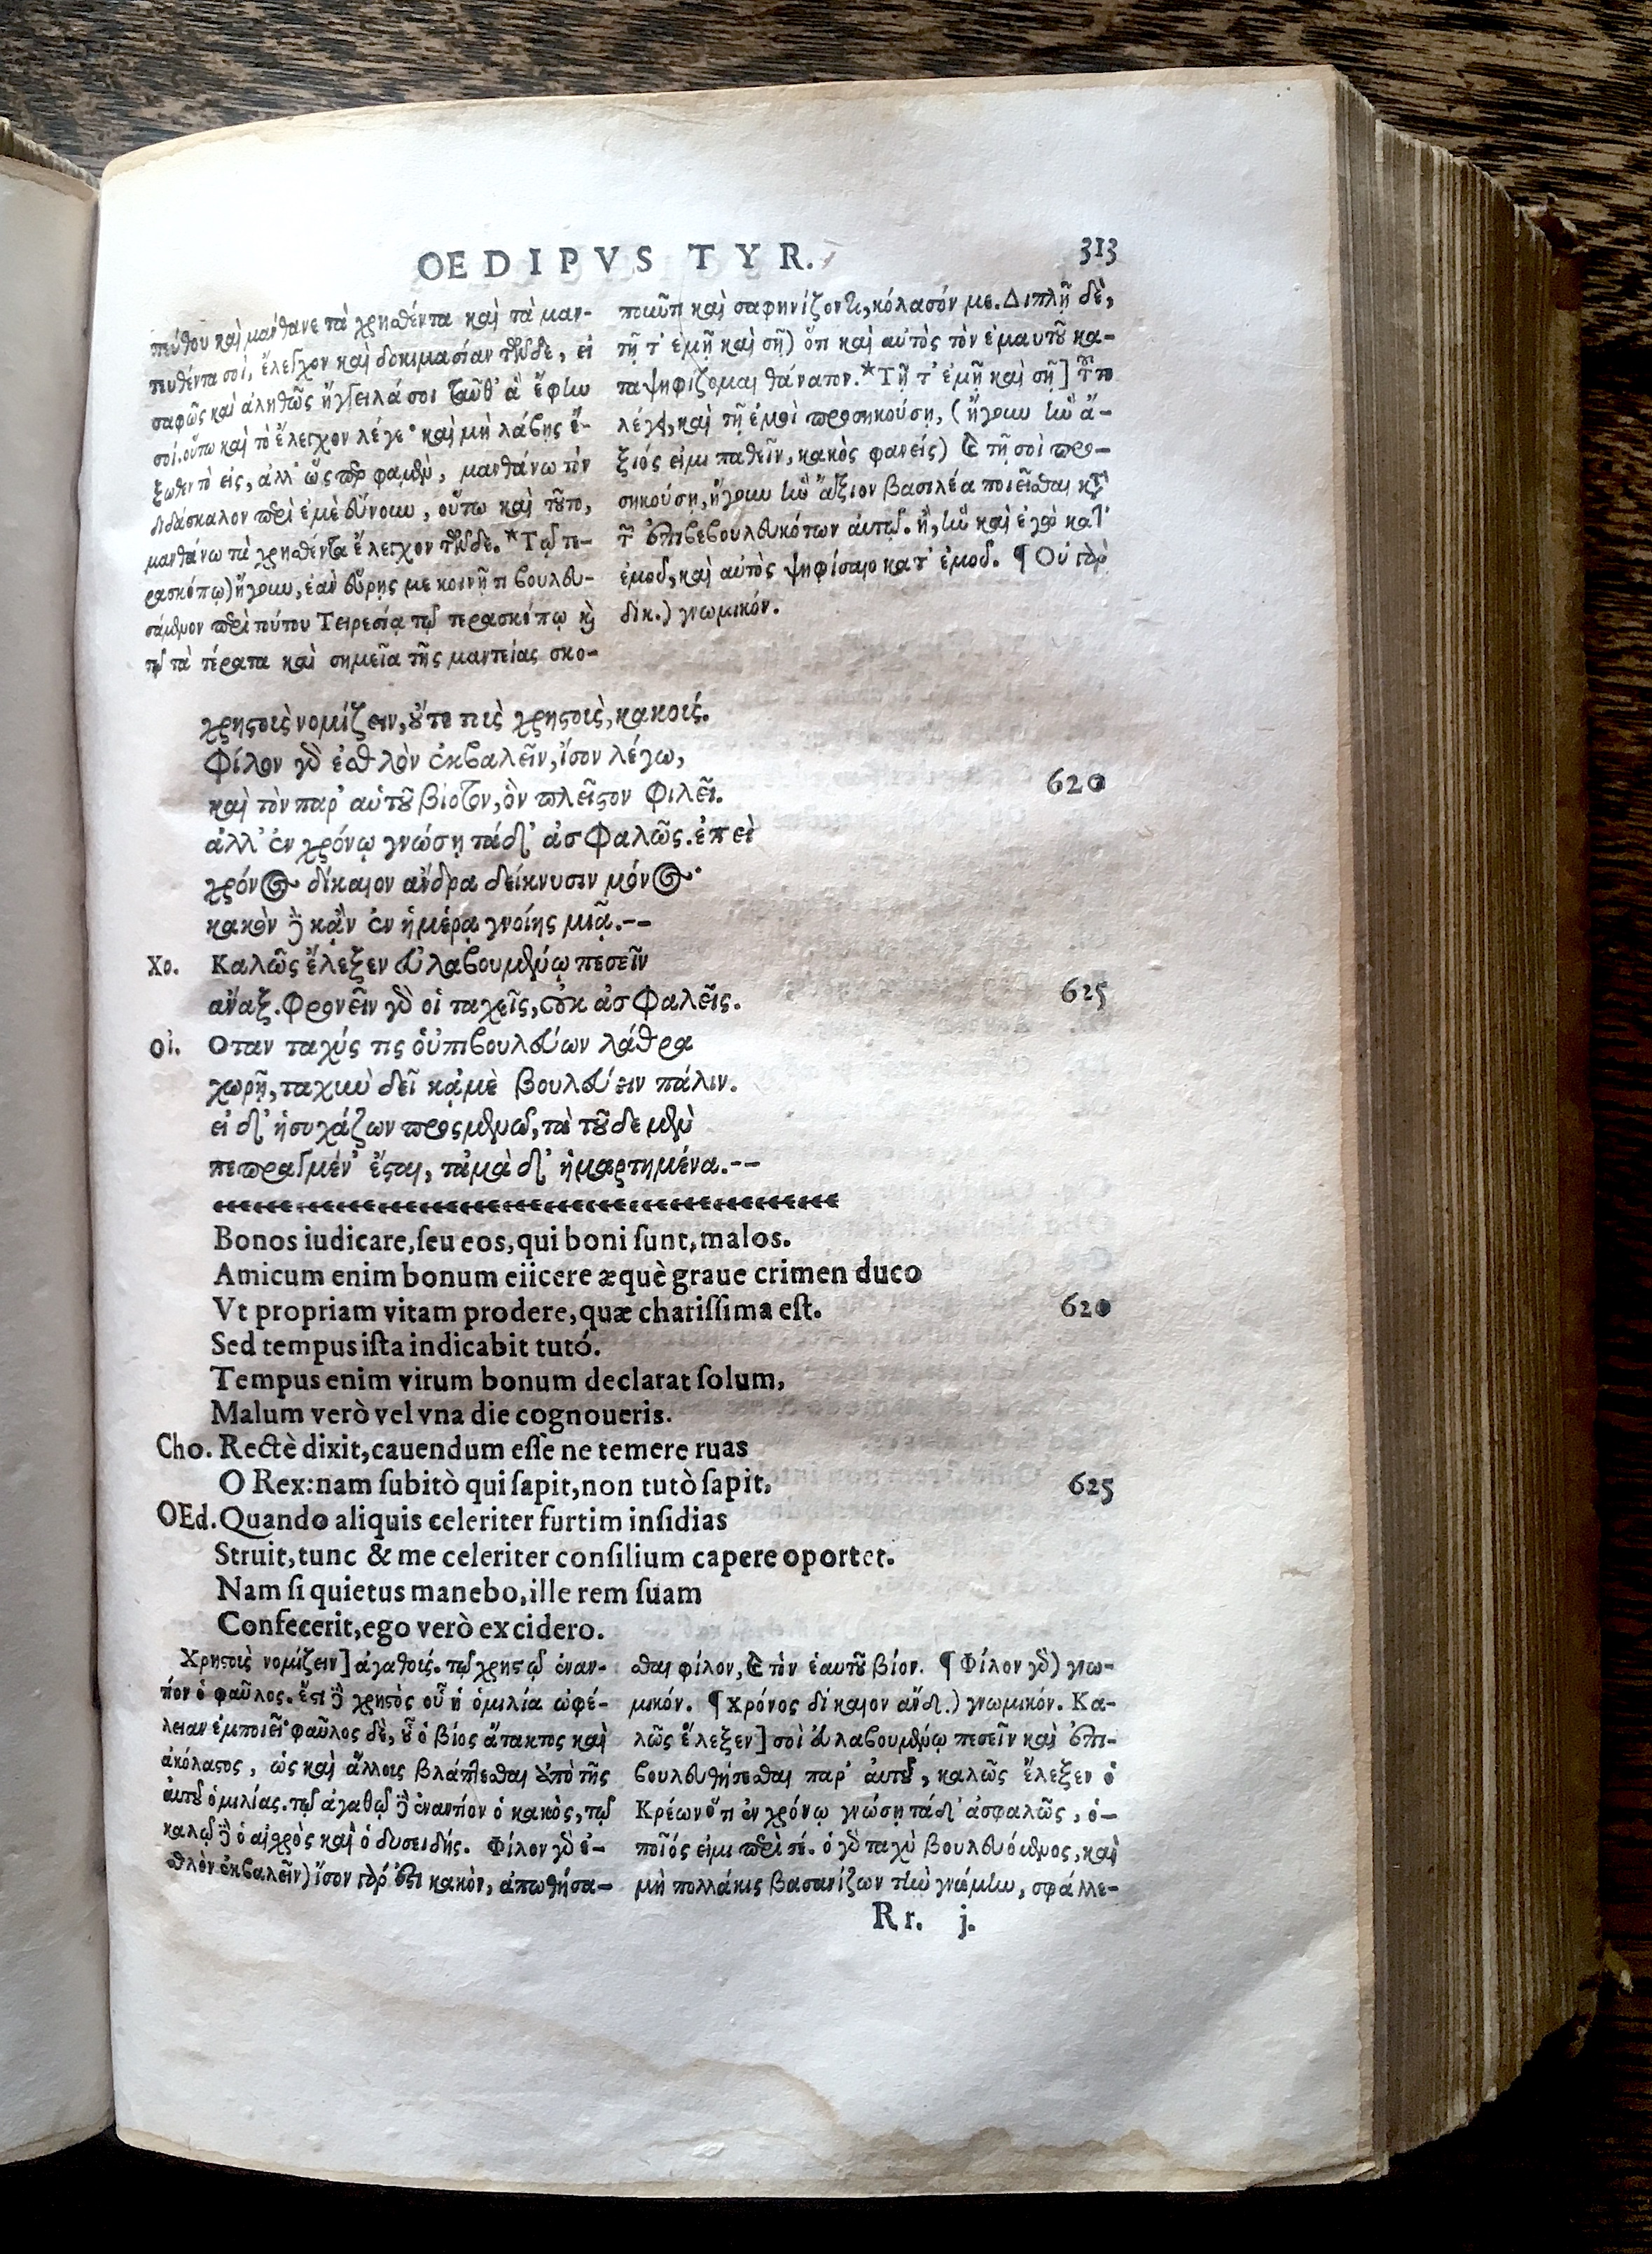 OEDIPVS TYR.
313
πεύθου καὶ μάνθανε τὰ χρησθέντα καὶ τὰ μαν-
τευθέντα σοὶ, ἔλεγχον καὶ δοκιμασίαν τῶνδε, εἰ
σαφῶς καὶ ἀληθῶς ἤγγειλά σοι ταῦθ' ἃ ἔφην
σοί. οὕτω καὶ τὸ ἔλεγχον λέγε· καὶ μὴ λάβῃς ἔ-
ξωθεν τὸ εἰς, ἀλλ' ὥσπερ φαμὲν, μανθάνω τὸν
διδάσκαλον περὶ ἐμὲ εὔνουν, οὕτω καὶ τοῦτο,
μανθάνω τὰ χρησθέντα ἔλεγχον τῶνδε. *Τῷ τε-
ρασκόπῳ) ἤγουν, ἐὰν εὕρῃς με κοινῇ τι βουλευ-
σάμενον περὶ τούτου Τειρεσίᾳ τῷ τερασκόπῳ καὶ
τῷ τὰ τέρατα καὶ σημεῖα τῆς μαντείας σκο-
ποῦντι καὶ σαφηνίζοντι, κόλασόν με. Διπλῇ δὲ,
τῇ τ' ἐμῇ καὶ σῇ) ὅτι καὶ αὐτὸς τὸν ἐμαυτοῦ κα-
ταψηφίζομαι θάνατον. *Τῇ τ' ἐμῇ καὶ σῇ] τοῦτο
λέγει, καὶ τῇ ἐμοὶ προσηκούσῃ, (ἤγουν ἣν ἄ-
ξιός εἰμι παθεῖν, κακὸς φανείς) καὶ τῇ σοὶ προ-
σηκούσῃ, ἤγουν ἣν ἄξιον βασιλέα ποιεῖσθαι κατὰ
τῶν ἐπιβεβουλευκότων αὐτῷ. ἢ, ἣν καὶ ἐγὼ κατ'
ἐμοῦ, καὶ αὐτὸς ψηφίσαιο κατ' ἐμοῦ. ¶ Οὐ γὰρ
δίκ.) γνωμικόν.
χρηστοὺς νομίζειν, οὔτε τοὺς χρηστοὺς, κακούς.
Φίλον γὰρ ἐσθλὸν ἐκβαλεῖν, ἴσον λέγω,
καὶ τὸν παρ' αὑτοῦ βίοτον, ὃν πλεῖστον φιλεῖ. 620
ἀλλ' ἐν χρόνῳ γνώσῃ τάδ' ἀσφαλῶς. ἐπεὶ
χρόνος δίκαιον ἄνδρα δείκνυσιν μόνος·
κακὸν δὲ κἂν ἐν ἡμέρᾳ γνοίης μιᾷ.--
Χο. Καλῶς ἔλεξεν εὐλαβουμένῳ πεσεῖν
ἄναξ. Φρονεῖν γὰρ οἱ ταχεῖς, οὐκ ἀσφαλεῖς. 625
Οἰ. Οταν ταχύς τις οὑπιβουλεύων λάθρα
χωρῇ, ταχὺν δεῖ κᾀμὲ βουλεύειν πάλιν.
εἰ δ' ἡσυχάζων προσμενῶ, τὰ τοῦδε μὲν
πεπραγμέν' ἔσται, τἀμὰ δ' ἡμαρτημένα.--
Bonos iudicare, seu eos, qui boni sunt, malos.
Amicum enim bonum eiicere æquè graue crimen duco
Vt propriam vitam prodere, quæ charissima est. 620
Sed tempus ista indicabit tutó.
Tempus enim virum bonum declarat solum,
Malum verò vel vna die cognoueris.
Cho. Rectè dixit, cauendum esse ne temere ruas
O Rex: nam subitò qui sapit, non tutò sapit. 625
OEd. Quando aliquis celeriter furtim insidias
Struit, tunc & me celeriter consilium capere oportet.
Nam si quietus manebo, ille rem suam
Confecerit, ego verò excidero.
Χρηστοὺς νομίζειν] ἀγαθούς. τῷ χρηστῷ ἐναν-
τίον ὁ φαῦλος. ἔστι δὲ χρηστὸς οὗ ἡ ὁμιλία ὠφέ-
λειαν ἐμποιεῖ· φαῦλος δὲ, οὗ ὁ βίος ἄτακτος καὶ
ἀκόλαστος, ὡς καὶ ἄλλοις βλάπτεσθαι ὑπὸ τῆς
αὐτοῦ ὁμιλίας. τῷ ἀγαθῷ δὲ ἐναντίον ὁ κακὸς, τῷ
καλῷ δὲ ὁ αἰσχρὸς καὶ ὁ δυσειδής. Φίλον γὰρ ἐ-
σθλὸν ἐκβαλεῖν) ἴσον γάρ ἐστι κακὸν, ἀπωθήσα-
σθαι φίλον, καὶ τὸν ἑαυτοῦ βίον. ¶ Φίλον γὰρ) γνω-
μικόν. ¶ Χρόνος δίκαιον ἄνδ.) γνωμικόν. Κα-
λῶς ἔλεξεν] σοὶ εὐλαβουμένῳ πεσεῖν καὶ ἐπι-
βουλευθήσεσθαι παρ' αὐτοῦ, καλῶς ἔλεξεν ὁ
Κρέων ὅτι ἐν χρόνῳ γνώσῃ τάδ' ἀσφαλῶς, ὁ-
ποῖός εἰμι περὶ σέ. ὁ γὰρ ταχὺ βουλευόμενος, καὶ
μὴ πολλάκις βασανίζων τὴν γνώμην, σφάλλε-
Rr. j.